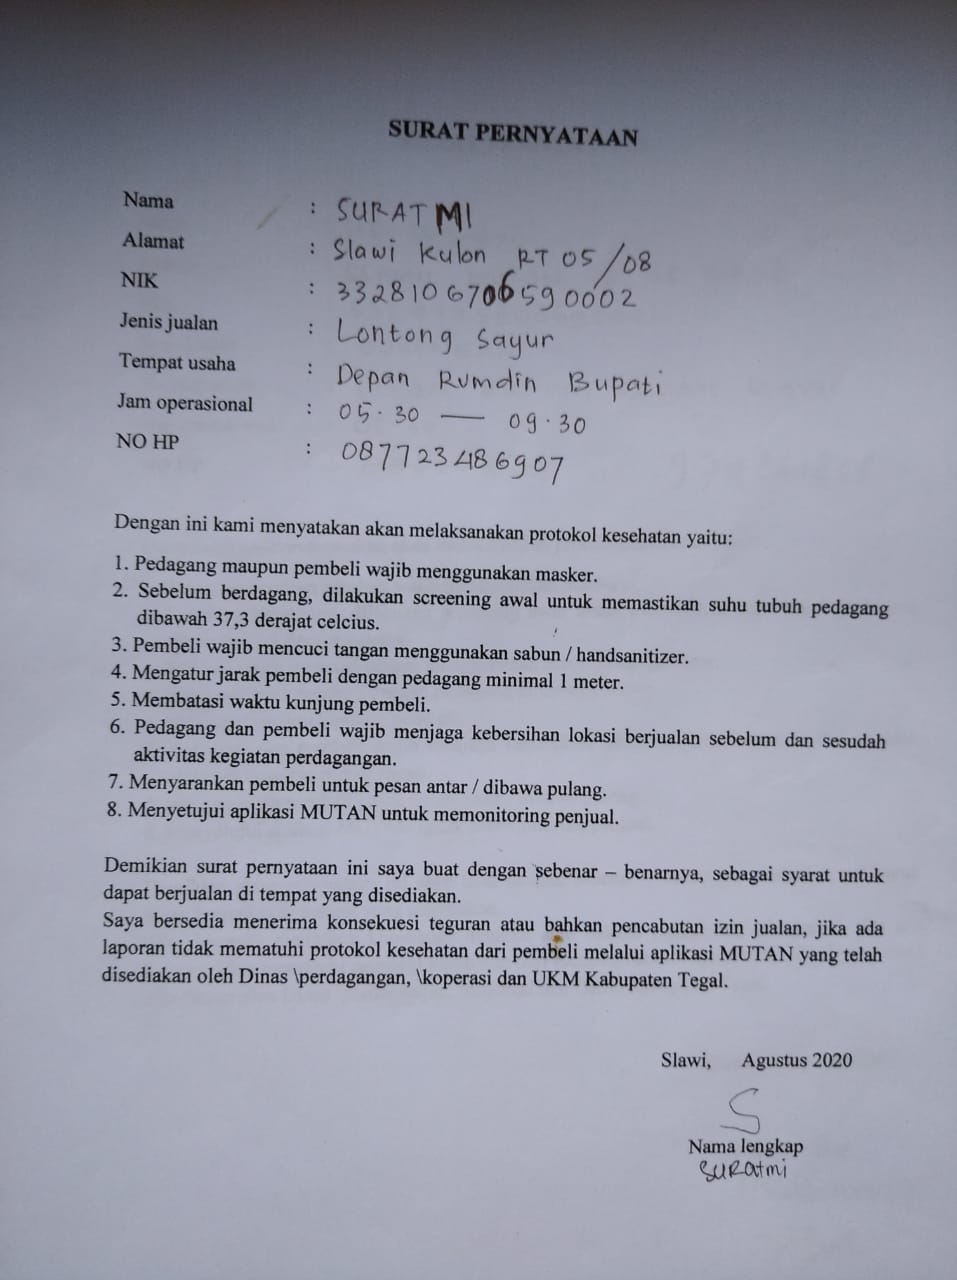 SURAT PERNYATAAN
Nama : SURATMI
Alamat : Slawi Kulon RT 05/08
NIK : 3328106706590002
Jenis jualan : Lontong Sayur
Tempat usaha : Depan Rumdin Bupati
Jam operasional : 05.30 — 09.30
NO HP : 087723486907
Dengan ini kami menyatakan akan melaksanakan protokol kesehatan yaitu:
1. Pedagang maupun pembeli wajib menggunakan masker.
2. Sebelum berdagang, dilakukan screening awal untuk memastikan suhu tubuh pedagang
dibawah 37,3 derajat celcius.
3. Pembeli wajib mencuci tangan menggunakan sabun / handsanitizer.
4. Mengatur jarak pembeli dengan pedagang minimal 1 meter.
5. Membatasi waktu kunjung pembeli.
6. Pedagang dan pembeli wajib menjaga kebersihan lokasi berjualan sebelum dan sesudah
aktivitas kegiatan perdagangan.
7. Menyarankan pembeli untuk pesan antar / dibawa pulang.
8. Menyetujui aplikasi MUTAN untuk memonitoring penjual.
Demikian surat pernyataan ini saya buat dengan sebenar – benarnya, sebagai syarat untuk
dapat berjualan di tempat yang disediakan.
Saya bersedia menerima konsekuesi teguran atau bahkan pencabutan izin jualan, jika ada
laporan tidak mematuhi protokol kesehatan dari pembeli melalui aplikasi MUTAN yang telah
disediakan oleh Dinas \perdagangan, \koperasi dan UKM Kabupaten Tegal.
Slawi, Agustus 2020
S
Nama lengkap
SURatmi